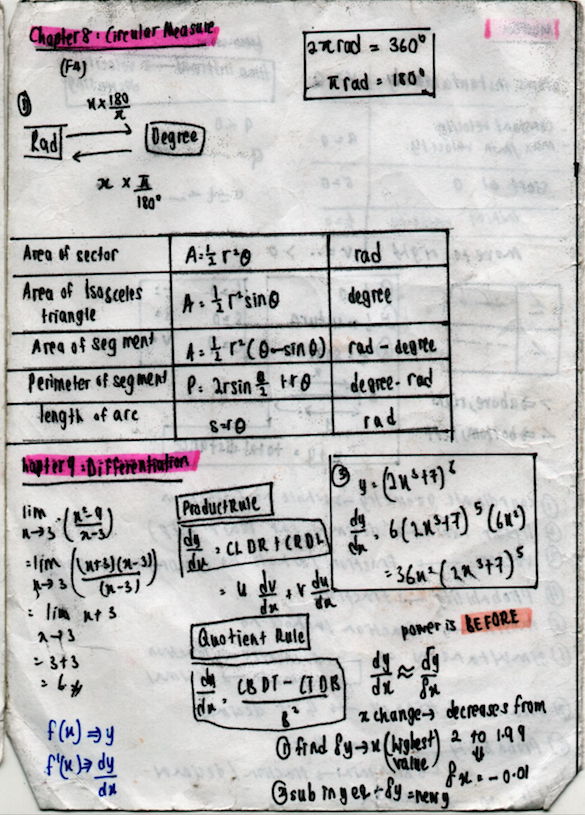 Chapter 8: Circular Measure
(F4)
2π rad = 360°
π rad = 180°
①
x × 180/π
Rad Degree
x × π/180°
Area of sector A = ½ r²θ rad
Area of Isosceles triangle A = ½ r² sin θ degree
Area of segment A = ½ r² (θ - sin θ) rad - degree
Perimeter of segment P = 2r sin θ/2 + rθ degree - rad
length of arc s = rθ rad
hapter 9: Differentiation
lim x→3 (x²-9/x-3)
= lim x→3 ((x+3)(x-3)/(x-3))
= lim x+3
x→3
= 3+3
= 6
f(x) ⇒ y
f'(x) ⇒ dy/dx
Product Rule
dy/dx = CLDR + CRDL
= u dv/dx + v du/dx
Quotient Rule
dy/dx = CBDT - CTDB / B²
③ y = (2x³+7)⁶
dy/dx = 6(2x³+7)⁵ (6x²)
= 36x² (2x³+7)⁵
power is BEFORE
dy/dx ≈ δy/δx
x change → decreases from
2 to 1.99
⇓
δx = -0.01
① find δy → x (highest value)
② sub in y eq + δy = new y